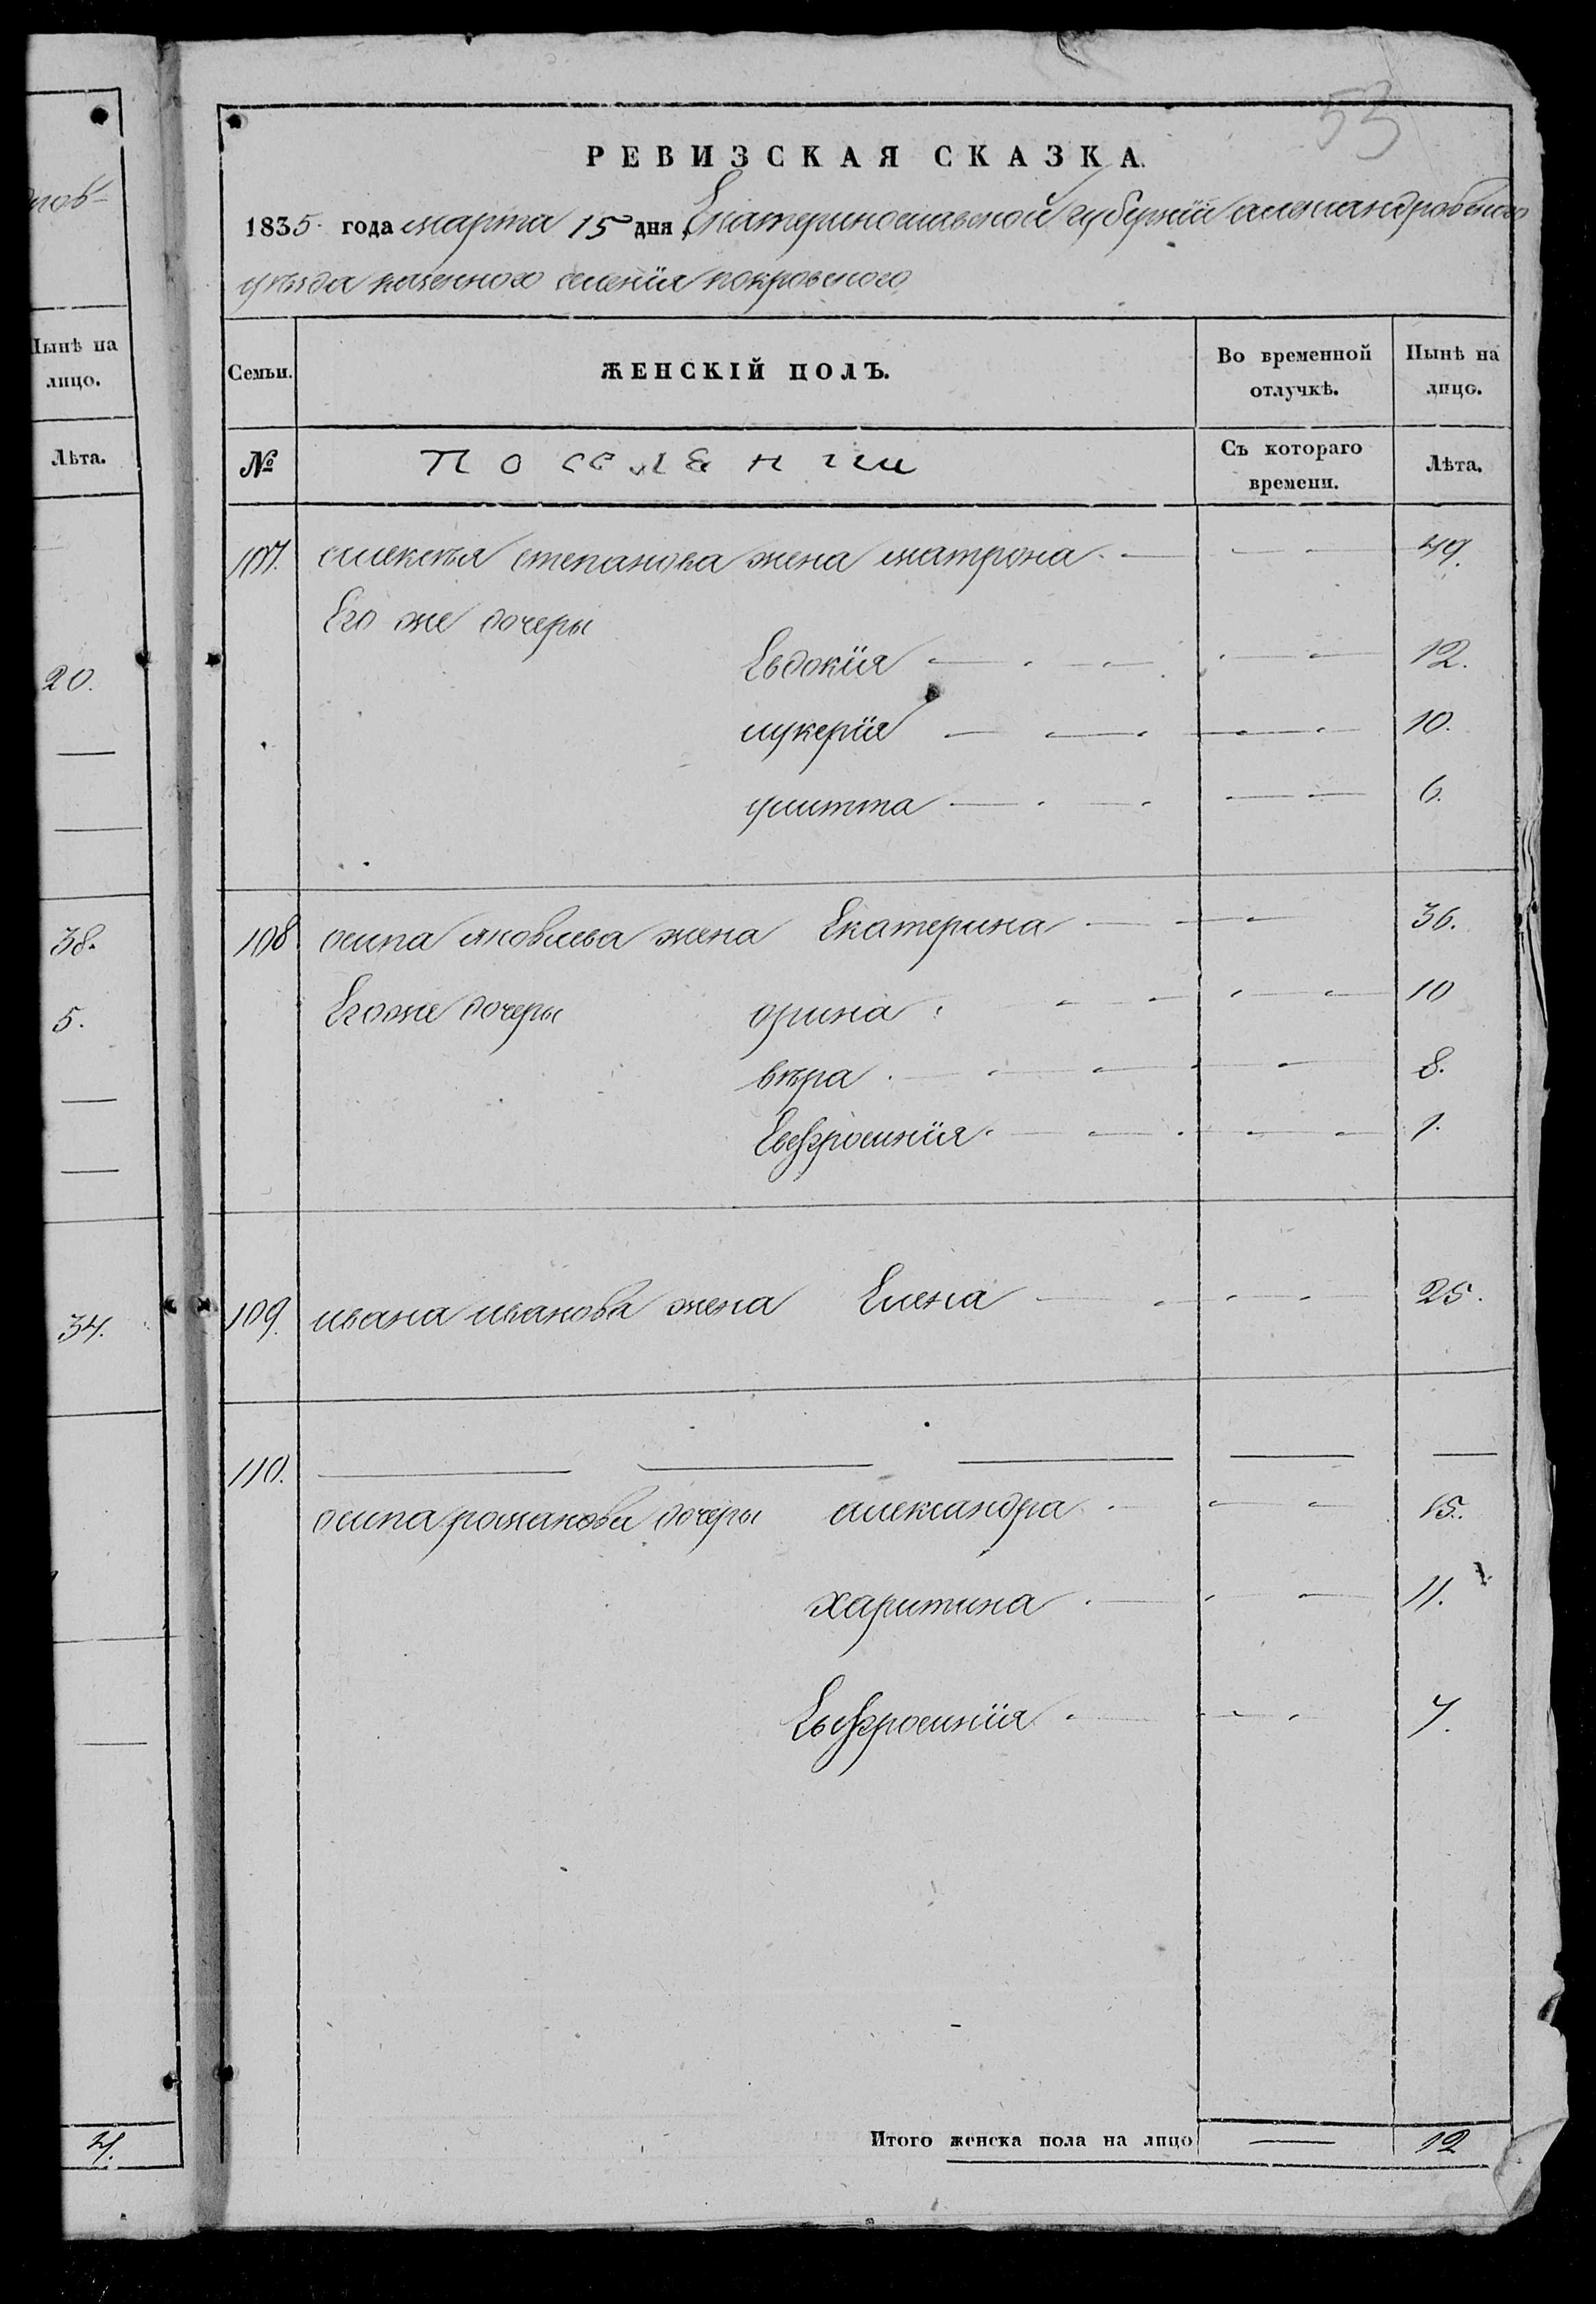 53
РЕВИЗСКАЯ СКАЗКА.
1835. года марта 15 дня Екатеринославской губернии александровского
уѣзда казенного селенія покровского
Нынѣ на
лицо.
Лѣта.
20.
38.
5.
34.
4.
Семьи.
ЖЕНСКІЙ ПОЛЪ.
Во временной
отлучкѣ.
Нынѣ на
лицо.
№
поселяини
Съ котораго
времени.
Лѣта.
107. алексѣя степанова жена матрона 49.
Его же дочеры
Евдокія 12.
лукерія 10.
улитта 6.
108 осипа яковлева жена Екатерина 36.
Егоже дочеры орина 10
вѣра 8.
Евфросинія 1.
109. ивана иванова жена Елена 25.
110.
осипа романова дочеры александра 15.
харитина 11.
Евфросинія 7.
Итого женска пола на лицо 12